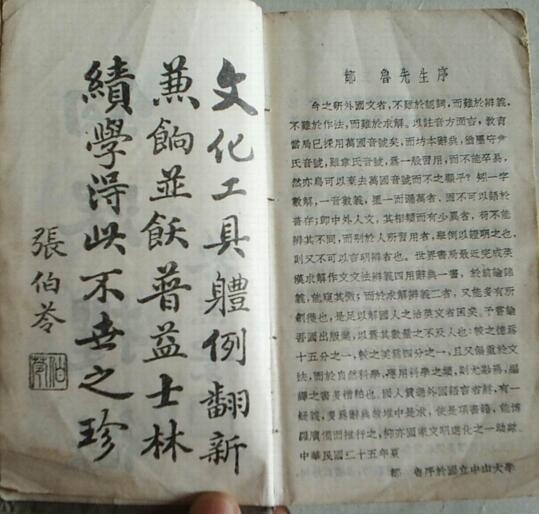 文化工具體例翻新
兼餉並飫普益士林
績學得此不世之珍
張伯苓
鄒 魯先生序
今之研外國文者,不難於認詞,而難於辨義,
不難於作法,而難於求解。以註音方面言,教育
當局已採用萬國音號矣,而坊本辭典,猶墨守尹
氏音號,雖韋氏音號,爲一般習用,而不能卒易,
然亦烏可以棄去萬國音號而不之顧乎?矧一字
數解,一音數義,者,固不可以語於
普存;卽中外人文,其相類而有少異者,苟不能
辨其不同,而別於人所習用者,舉例以證明之也,
則又不可以言明辨者也。世界書局最近完成英
漢求解作文文法辨義四用辭典一書,於前論諸
義,能窺其微;而於求解辨義二者,又能多有所
創穫也,是足以解國人之治英文者困矣。予嘗論
吾國出版業,以爲其數量之不及人也:較之德爲
十五分之一,較之美爲四分之一,且又偏重於文
法,而於自然科學,應用科學之類,則尤鮮焉,編
譯之書多糟粕也。國人外國語言者解,有一
疑義,爲辭典故堆中是求,使是項書籍,能博
廣備而推行之,抑亦國家文明進化之一助歟。
中華民國二十五年夏
鄒 魯序於國立中山大學